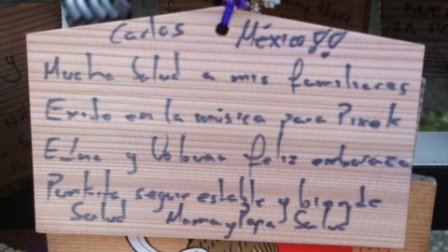 Carlos México!!
Mucha Salud a mis familiares
Exito en la música para Pixek
Edna y Volovan feliz embarazo
seguir estable y bien de
Salud Mama y Papa Salud